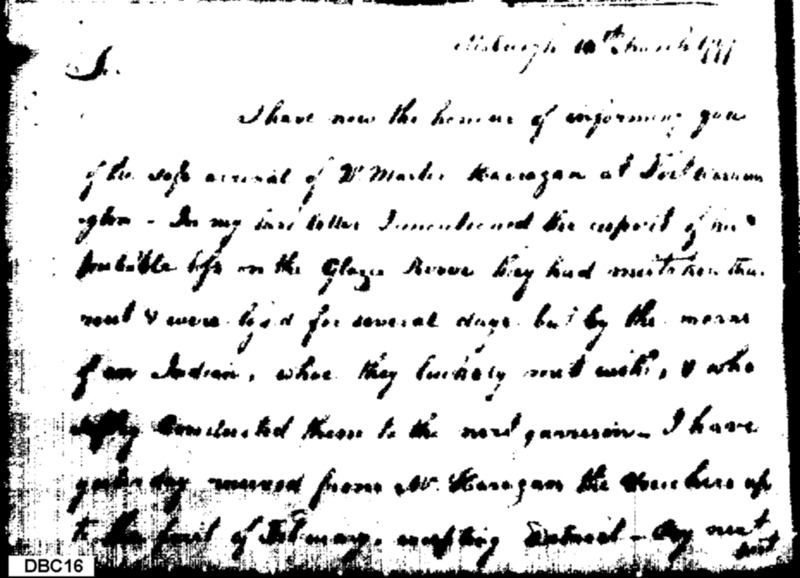 Pitsburgh 10th March 1797
Sir
I have now the honour of informing you
of the safe arrival of Mr. Martin Harragan at Fort
ington - In my last letter I mentioned the report of his
probable loss on the Glaze River they had
& were lost for several days but by the means
of an Indian, whoe they luckely met with, & who
safley Conducted them to the next garrison - I have
yesterday received from Mr. Haragan the Vouchers up
to the first of February, excepting Detroit - By next